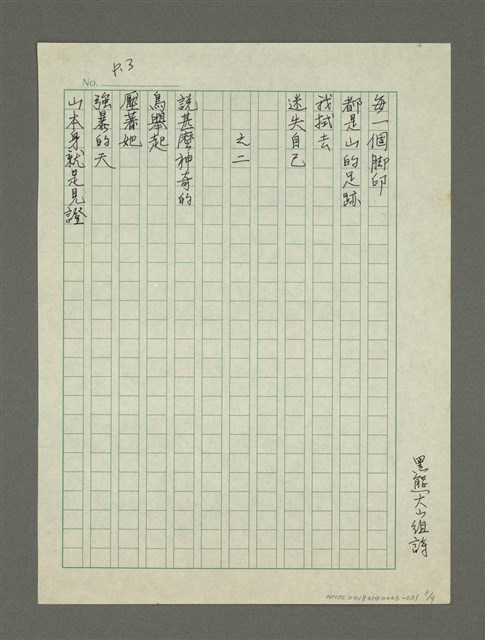 No. P.3
每一個腳印
都是山的足跡
我拭去
迷失自己
之二
說甚麼神奇的
鳥舉起
壓著她
強暴的天
山本身就是見證
黑熊大山組詩
3/9